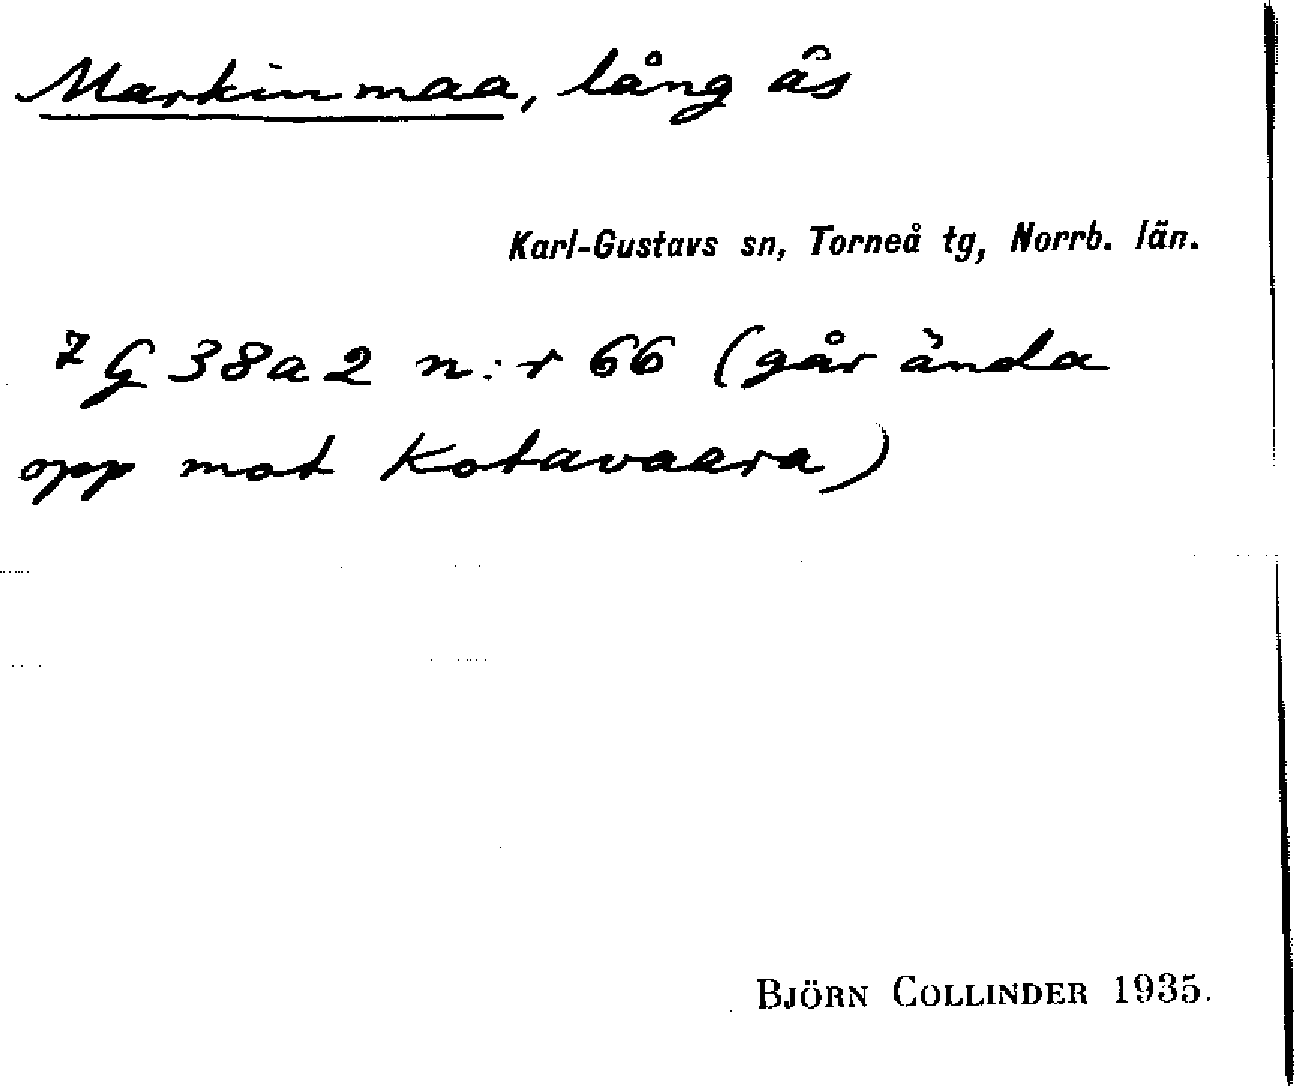 Markinmaa, lång ås
Karl-Gustavs sn, Torneå tg, Norrb. län.
7 G 38a2 n:r 66 (går ända
opp mot Kotavaara)
BJÖRN COLLINDER 1935.